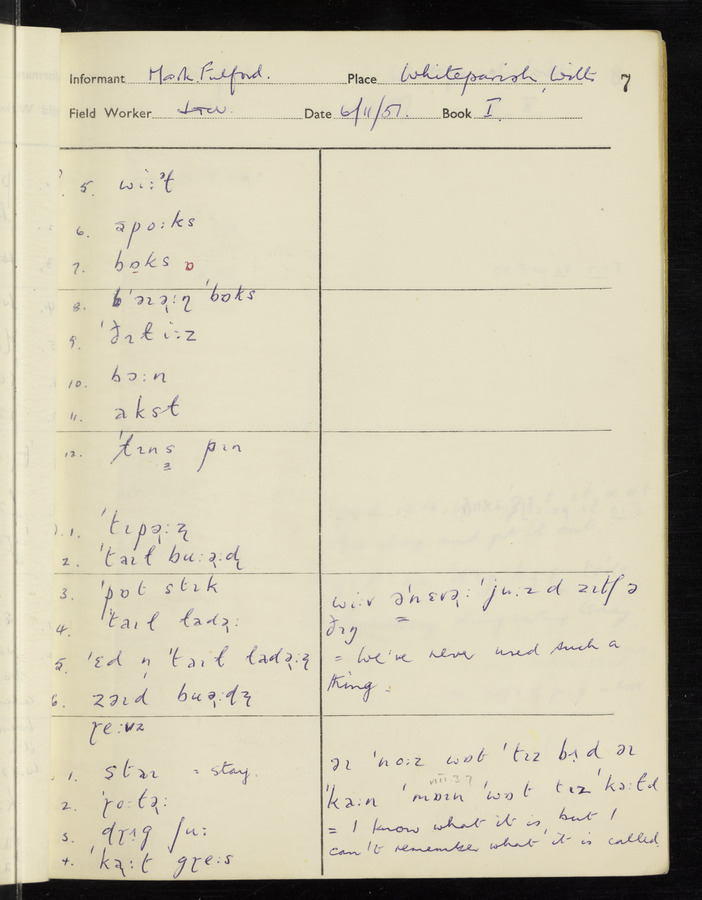 Informant Mark Fulford. Place Whiteparish, Wilts 7
Field Worker Date 6/11/57. Book I.
5. wiːᵊɫ
6. apoːks
7. bɒ̣ks ɒ
8. ˈbɒks
9. ˈðɪɫ iːz
10. bɔːn
11. akst
12. ˈtɪns pɪn
1. ˈtɪpə̢ːz̢
2. ˈtaɪɫ buːə̢ːd̢
3. ˈpɒt stɪk
4. ˈtaɪɫ ladə̢ː
5. ˈɛd n̩ ˈtaɪɫ ladə̢ːz̢
6. zəɪd buə̢ːdz̢
ɽeːvz
1. stəɪ = stay.
2. ˈɽoːtə̢ː
3. dɽɪg ʃuː
4. ˈkə̢ːt gɽeːs
wiːv əˈnɛvə̢ː ˈjuːzd zɪtʃ ə
ðɪŋ
= We've never used such a
thing.
əɪ ˈnoːz wɒt ˈtɪz bɪd əɪ
ˈkaːn ˈməɪn ˈwɒt tɪz ˈkɔːɫd
VIII.3.7
= I know what it is, but I
can't remember what it is called.